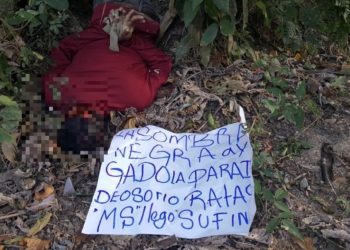 LA SOMBRA
NEGRA aY
GADO LA PARAI
DE OSORIO RATAS
"MS" llego SU FIN